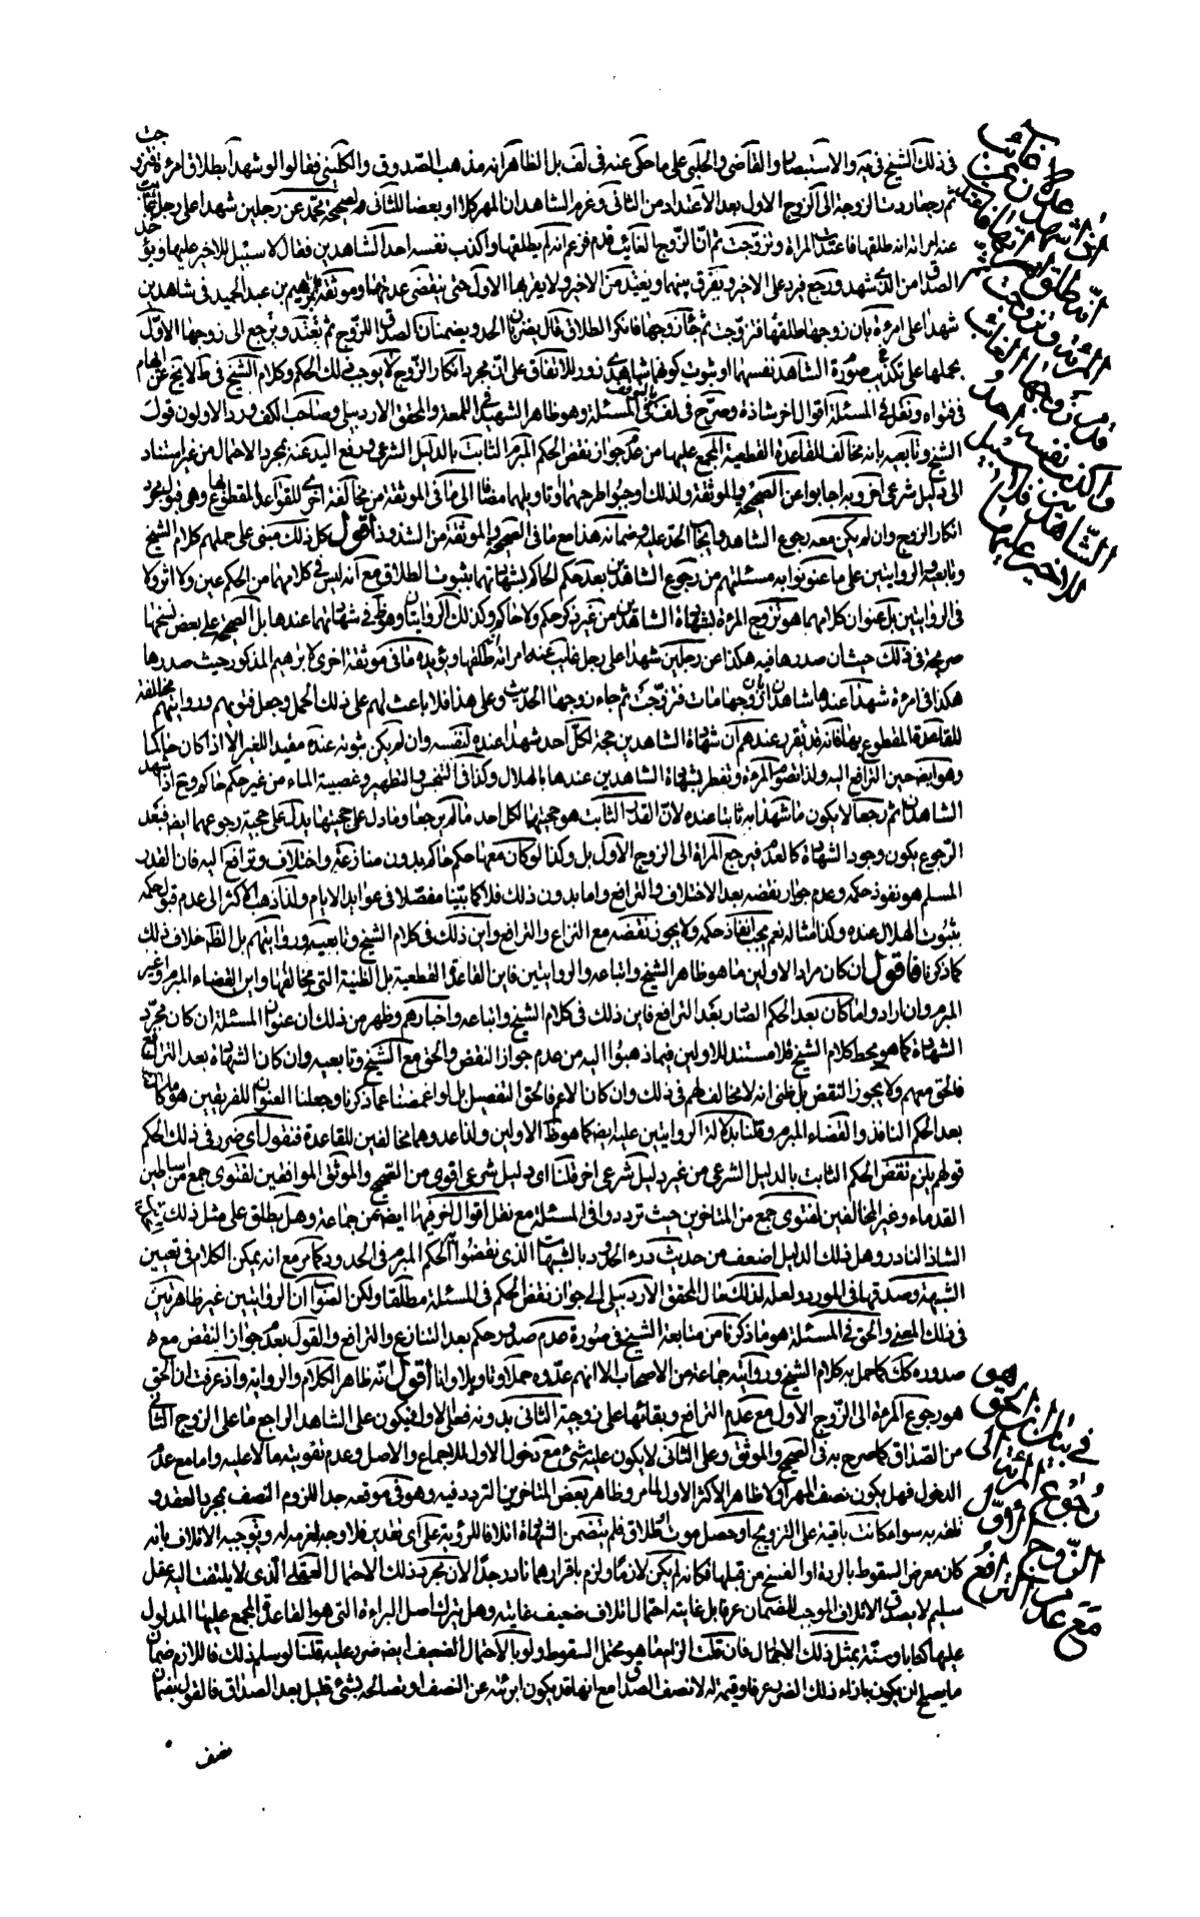 في ذلك الشيخ في يه والاستبصار والقاضي والحلبي على ما حكى عنه في لف بل الظاهر انه مذهب الصدوق والكليني فقالوا لو شهدا بطلاق امرءة فتزوجت
ثم رجعا ردت الزوجة الى الزوج الاول بعد الاعتداد من الثاني وغرم الشاهدان المهر كلا او بعضا للثاني لصحيحة محمد عن رجلين شهدا على رجل غائب
عند امرأته انه طلقها فاعتدت المرأة وتزوجت ثم ان الزوج الغائب قدم فزعم انه لم يطلقها واكذب نفسه احد الشاهدين فقال لا سبيل للاخير عليها ويؤخذ
الصداق من الذي شهد ورجع فيرد على الاخير ويفرق بينهما وتعتد من الاخير ولا يقربها الاول حتى تنقضي عدتها وموثقة ابرهيم بن عبد الحميد في شاهدين
شهدا على امرءة بان زوجها طلقها فتزوجت ثم جاء زوجها فانكر الطلاق قال يضربان الحد ويضمنان الصداق للزوج ثم تعتد وترجع الى زوجها الاول
بحملها على تكذيب صورة الشاهد نفسهما او ثبوت كونهما شاهدي زور للاتفاق على ان مجرد انكار الزوج لا يوجب ذلك الحكم وكلام الشيخ في ط لا يخ عن ابهام
في فتواه ونقل في المسئلة أقوال اخر شاذة وصرح في لف المسئلة وهو ظاهر الشهيد في اللمعة والمحقق الاردبيلي وصاحب الكفاية ورد الاولون قول
الشيخ وتابعيه بانه مخالف للقاعدة القطعية المجمع عليها من عدم جواز نقض الحكم المبرم الثابت بالدليل الشرعي ورفع اليد عنه بمجرد الاحتمال من غير استناد
الى دليل شرعي اخر وبه اجابوا عن الصحيحة والموثقة ولذلك اوجبوا طرحهما او تاويلهما مضافا الى ما في الموثقة من مخالفة اخرى للقواعد المقطوع بها وهي قبول مجرد
انكار الزوج وان لم يكن معه رجوع الشاهد وايجاب الحد عليه وضمانه هذا مع ما في الصحيحة والموثقة من الشذوذ أقول كل ذلك مبني على حملهم كلام الشيخ
وتابعيه والروايتين على ما عنونوا به مسئلتهم من رجوع الشاهدين بعد حكم الحاكم بشهادتهما بثبوت الطلاق مع انه ليس في كلامهما من الحكم عين ولا اثر ولا
في الروايتين بل عنوان كلامهما هو تزوج المرءة بشهادة الشاهدين من غير ذكر حكم ولا حاكم وكذلك الروايتان وهو ظ في شهادتهما عندها بل الصحيحة على بعض نسخها
صريحة في ذلك حيث ان صدرها فيه هكذا عن رجلين شهدا على رجل غاب عند امرأته انه طلقها ويؤيده ما في موثقة اخرى لابرهيم المذكور حيث صدرها
هكذا في امرءة شهد عندها شاهدان بان زوجها مات فتزوجت ثم جاء زوجها الحديث وعلى هذا فلا باعث لهم على ذلك الحمل وجعل فتويهم وروايتهم مخالفة
للقاعدة المقطوع بها فانه قد تقرر عندهم ان شهادة الشاهدين حجة لكل احد شهدا عنده لنفسه وان لم يكن ثبوته عنده مفيدا للغير الا اذا كان حاكما
وهو ايضا حين الترافع اليه ولذا تصوم المرءة وتفطر بشهادة الشاهدين عندها بالهلال وكذا في التنجس والتطهير وغصبية الماء من غير حكم حاكم وح اذا شهد
الشاهدان ثم رجعا لا يكون ما شهدا به ثابتا عنده لان القدر الثابت هو حجيتها لكل احد ما لم يرجعا وما دل على حجيتها يدل على حجية رجوعهما ايضا فبعد
الرجوع يكون وجود الشهادة كالعدم فيرجع المرأة الى الزوج الاول بل وكذا لو كان معهما حكم حاكم بدون منازعة واختلاف وترافع اليه فان القدر
المسلم هو نفوذ حكمه وعدم جواز نقضه بعد الاختلاف والترافع واما بدون ذلك فلا كما بينا مفصلا في عوايد الايام ولذا ذهب الاكثر الى عدم قبول حكمه
بثبوت الهلال عنده وكذا امثاله نعم يجب انفاذ حكمه ولا يجوز نقضه مع النزاع والترافع واين ذلك في كلام الشيخ وتابعيه وروايتهم بل الظاهر خلاف ذلك
كما ذكرنا فاقول ان كان مراد الاولين ما هو ظاهر الشيخ واتباعه والروايتين فاين القاعدة القطعية بل الظنية التي يخالفها واين القضاء المبرم او غير
المبرم وان ارادوا ما كان بعد الحكم الصادر بعد الترافع فاين ذلك في كلام الشيخ واتباعه واخبارهم وظهر من ذلك ان عنوان المسئلة ان كان مجرد
الشهادة كما هو محط كلام الشيخ فلا مستند للاولين فيما ذهبوا اليه من عدم جواز النقض والحق مع الشيخ وتابعيه وان كان الشهادة بعد الترافع
فالحق معهم ولا يجوز النقض بل ظني انه لا مخالف لهم في ذلك وان كان الاعم فالحق التفصيل بل لو اغمضنا عما ذكرنا وجعلنا العنوان للفريقين هو ما كان
بعد الحكم النافذ والقضاء المبرم وقلنا بدلالة الروايتين عليه ايضا كما هو ظ الاولين ولذا عدوهما مخالفين للقاعدة فنقول اي ضرر في ذلك الحكم
قولهم يلزم نقض الحكم الثابت بالدليل الشرعي من غير دليل شرعي اخر قلنا اي دليل شرعي اقوى من الصحيح والموثق الموافقين لفتوى جمع من اساطين
القدماء وغير المخالفين لفتوى جمع من المتاخرين حيث ترددوا في المسئلة مع نقل اقوال اخر فيها ايضا من جماعة وهل يطلق على مثل ذلك
الشاذ النادر وهل ذلك الدليل اضعف من حديث درء الحدود بالشبهات الذي نقضوا به الحكم المبرم في الحدود كما مر مع انه يمكن الكلام في تعيين
الشبهة وصدقها في المورد ولعله لذلك مال المحقق الاردبيلي الى جواز نقض الحكم في المسئلة مطلقا ولكن الصواب ان الروايتين غير ظاهرتين
في ذلك المعنى والحق في المسئلة هو ما ذكرنا من متابعة الشيخ في صورة عدم صدور حكم بعد التنازع والترافع والقول بعدم جواز النقض مع
صدوره كك كما حمل به كلام الشيخ وروايته جماعة من الاصحاب الا انهم عدوه حملا وتاويلا وانا أقول انه ظاهر الكلام والرواية واذ عرفت ان الحق
هو رجوع المرءة الى الزوج الاول مع عدم الترافع وبقائها على زوجية الثاني بدونه فعلى الاول فيكون على الشاهد الراجع ما على الزوج الثاني
من الصداق كما صرح به في الصحيح والموثق وعلى الثاني لا يكون عليه شئ مع دخول الاول للاجماع والاصل وعدم تفويته مالا عليه واما مع عدم
الدخول فهل يكون نصف المهر او لا ظاهر الاكثر الاول لما مر وظاهر بعض المتاخرين التردد فيه وهو في موقعه جدا للزوم النصف بمجرد العقد و
تلفه به سواء كانت باقية على التزويج او حصل موت او طلاق فلم يتضمن الشهادة اتلافا للزوج على اي تقدير فلا وجه لغرمه له وتوجيه الاتلاف بانه
كان معرض السقوط بالردة او الفسخ من قبلها فكانه لم يكن لازما ولزم باقرارهما نادر جدا لان مجرد ذلك الاحتمال العقلي الذي لا يلتفت اليه عقل
سليم لا يصدق الاتلاف الموجب للضمان عرفا بل غايته احتمال اتلاف ضعيف غايته وهل يترك اصل البراءة التي هو القاعدة المجمع عليها المدلول
عليها كتابا وسنة بمثل ذلك الاحتمال فان قلت الزام ما هو محتمل السقوط ولو بالاحتمال الضعيف ايضا ضرر عليه قلنا لو سلم ذلك فاللازم ضمان
ما يصلح ان يكون بازاء ذلك الضرر عرفا وقيمة له لا نصف الصداق مع انها قد يكون ابرئته عن النصف او تصالحه بشئ قليل بعد الصداق فالقول بضمان
على غائب
عند امرأته انه
طلقها فاعتدت
المرأة وتزوجت ثم
قدم زوجها الغائب
واكذب نفسه احد
الشاهدين فلا سبيل
للاخير عليها
في بيان ان الحق هو
رجوع المرءة الى
الزوج الاول
مع عدم الترافع
نصف